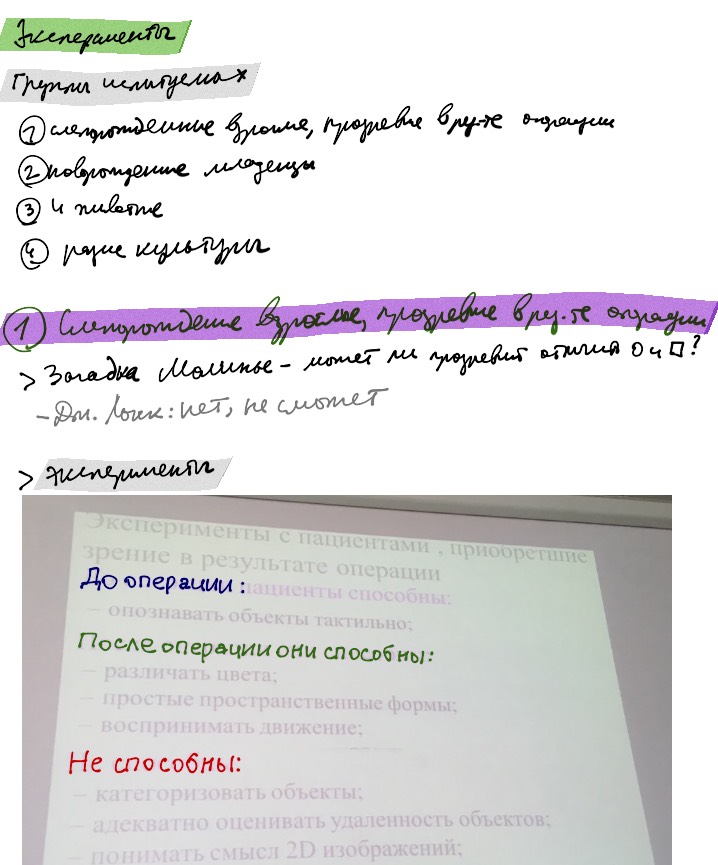 Эксперименты
Группы испытуемых
① слепорожденные взрослые, прозревшие в рез-те операции
② новорожденные младенцы
③ ч животные
④ разные культуры
① Слепорожденные взрослые, прозревшие в рез-те операции
> Загадка Молинье – может ли прозревший отличить О и □?
– Дж. Локк: нет, не сможет
> Эксперименты
Эксперименты с пациентами , приобретшие
зрение в результате операции
До операции: пациенты способны:
– опознавать объекты тактильно;
После операции они способны:
– различать цвета;
– простые пространственные формы;
– воспринимать движение;
Не способны:
– категоризовать объекты;
– адекватно оценивать удаленность объектов;
– понимать смысл 2D изображений;